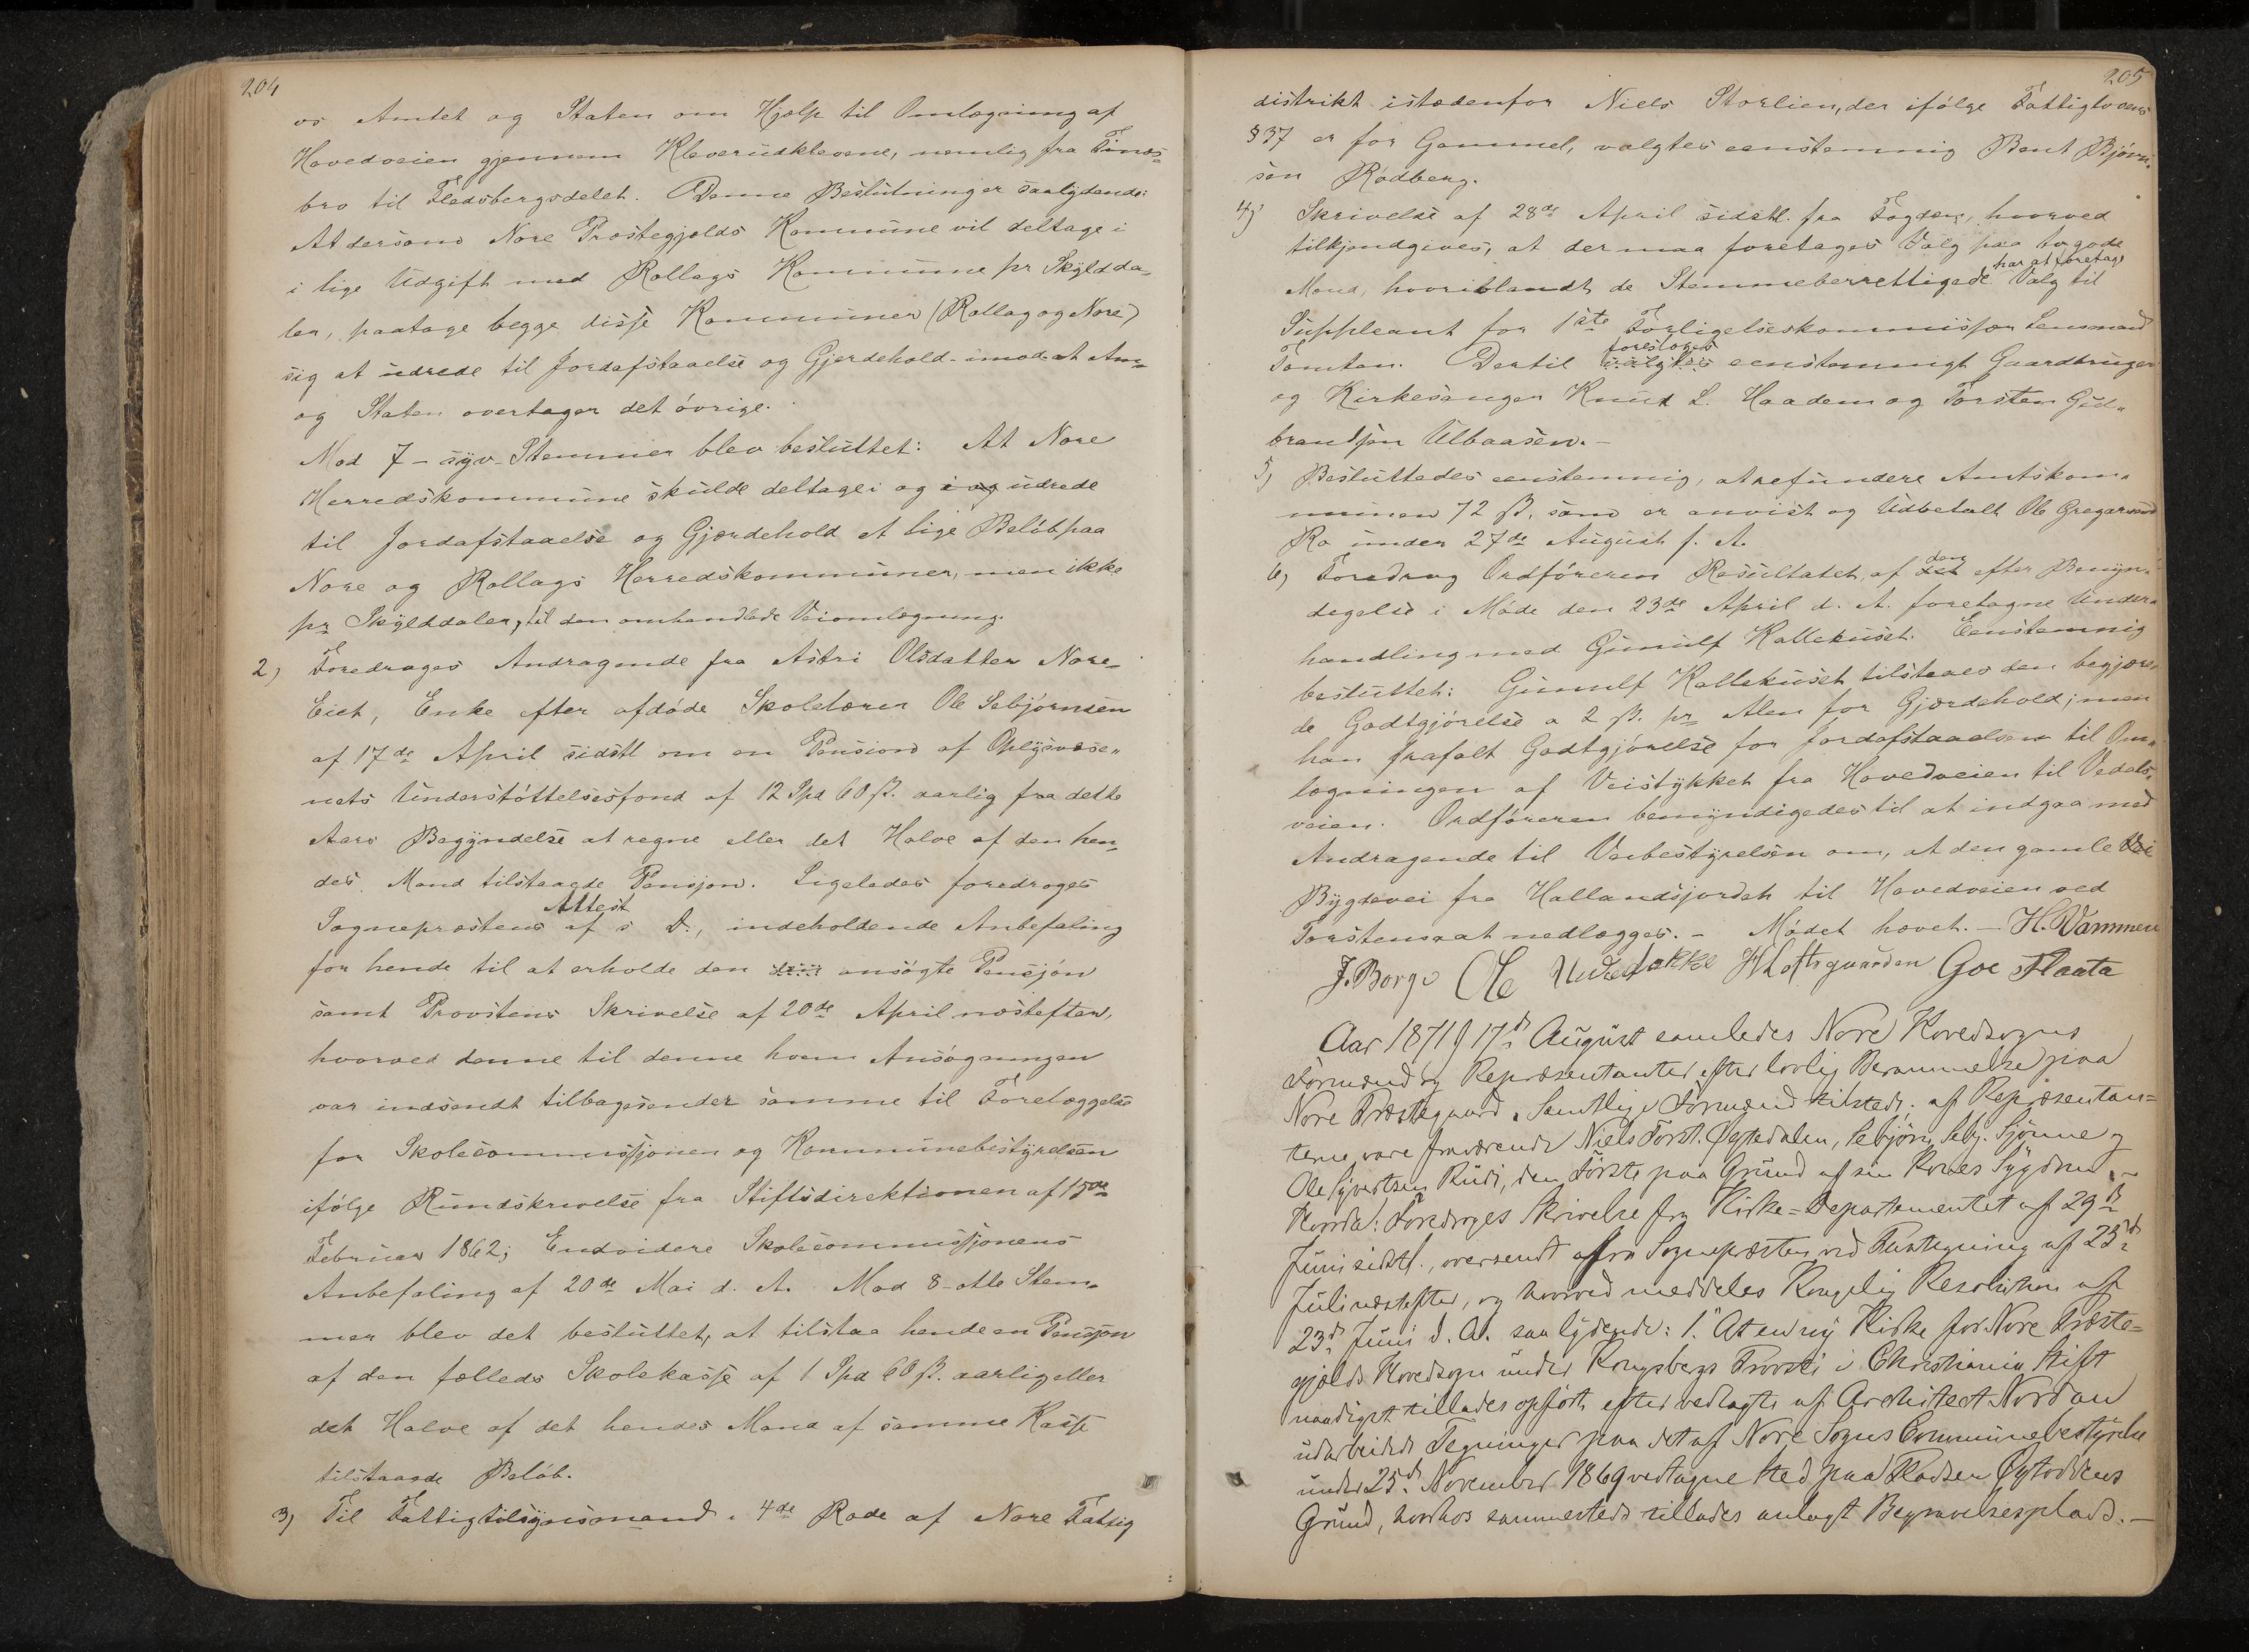 204
os Amtet og Staten om Hjælp til Omlægning af
Hovedveien gjennem Kleverudklevene, nemlig fra Finæs-
bro til Flesbergsdelet. Denne Beslutning er saalydende:
At dersom Nore Præstegjælds Kommune vil deltage i
i lige Udgift med Rollags Kommune pr Skyldda-
ler, paatage begge disse Kommuner (Rollag og Nore)
sig at udrede til Jordafstaaelse og Gjerdehold imod at Am-
og Staten overtager det övrige.
Mod 7 - syv - Stemmer blev besluttet: At Nore
Herredskommune skulde deltage i og i og udrede
til Jordafstaaelse og Gjærdehold et lige Belöb paa
Nore og Rollags Herredskommuner, men ikke
pr Skylddaler, til den omhandlede Veiomlægning.
2) Foredroges Andragende fra Astri Olsdatter Nore-
Eiet, Enke efter afdöde Skolelærer Ole Sebjörnsen
af 17de April sidstl om en Pension af Oplysvæse-
nets Understöttelsesfond af 12 Spd 60 ß. aarlig fra dette
Aars Begyndelse at regne eller det Halve af den hen-
des Mand tilstaaede Pensjon. Ligeledes foredroges
Sognepræstens Attest af s D., indeholdende Anbefaling
for hende til at erholde den ansögte Pensjón
samt Provstens Skrivelse af 20de April næstefter,
hvorved denne til denne ham Ansögningen
var indsendt tilbagesender samme til Forelæggelse
for Skolecommissjonen og Kommunebestyrelsen
ifölge Rundskrivelse fra Stiftsdirektionen af 15de
Februar 1862; Endvidere Skolecommissjonens
Anbefaling af 20de Mai d. A. Mod 8 - otte Stem-
mer blev det besluttet, at tilstaa hende en Pensjon
af den fælleds Skolekasse af 1 Spd 60 ß. aarlig eller
det Halve af det hendes Mand af samme Kasse
tilstaaede Belöb.
3) Til Fattigtilsynsmand i 4de Rode af Nore Fattig
205
distrikt istædenfor Niels Storlien, der ifölge Fattiglovens
§ 37 er for Gammel, valgtes eenstemmig Bent Bjórn-
son Rödberg.
4) Skrivelse af 28de April sidstl. fra Fogden, hvorved
tilkjendgives, at der maa foretages Valg paa to gode
Mænd, hvoriblandt de Stemmeberrettigede har at foretage Valg til
Suppleant for 1ste Forligelseskommissær Lensmand
Tomten. Dertil valgtes foresloges eenstemmigt Gaardbruger
og Kirkesanger Knud L. Haadem og Torsten Gud-
brandsen Ulbaasen. -
5) Besluttedes eenstemmig, at refundere Amtskom-
munen 72 ß. som er anvist og Udbetalt Ole Gregarsen
Ra under 27de August f. A.
6) Foredrog Ordföreren Resultatet, af det den efter Bemyn-
digelse i Möde den 23de April d. A. foretagne Under-
handling med Gunulf Kallekuset. Eenstemmig
besluttet: Gunulf Kallekuset tilstaaes den begjære-
de Godtgjörelse a 2 ß. pr Alen for Gjærdehold; men
han frafalt Godtgjörelse for Jordafstaaelsen til Om-
lægningen af Veistykket fra Hovedveien til Vedals-
veien. Ordföreren bemyndigedes til at indgaa med
Andragende til Veibestyrelsen om, at den gamle Vei
Bygdevei fra Hallandsjordet til Hovedveien ved
Torstensaat nedlægges. - Mödet hævet. - H. Vammen
J. Borge Ole H Loftsgaarden Goe Flaata
Aar 1871 17d August samledes Nore Hovedsogns
Formænd og Repræsentanter efter lovlig Berammelse paa
Nore Præstegaard. Samtlige Formænd tilstede; af Repræsentan=
terne vare fraværende Niels Torst. Øgtedalen, Sebjörn Seb. Sjönne og
Ole Syvertsen Rudi, den Förste paa Grund af sin Kones Sygdom. -
Hvorda: Foredroges Skrivelse fra Kirke=Departementet af 29d
Juni sidstl., oversendt fra Sognepræsten ved Paategning af 23d
Juli næstefter, og hvorved meddeles Kongelig Resolution af
23d Juni d. A. saa lydende: 1. "At en ny Kirke for Nore Præste=
gjælds Hovedsogn under Kongsbergs Provsti i Christiania Stift
naadigst tillades opfört efter vedlagte af Architect Nordan
udarbeidede Tegninger paa det af Nore Sogns Communebestyrelse
under 25d November 1869 vedtagne Sted paa Pladsen Øytoddens
Grund, hvorhos sammesteds tillades anlagt Begravelsesplads. -